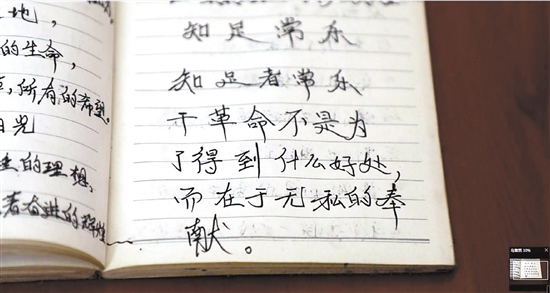 地，
的生命，
，所有的希望。
的理想，
着奋进的
知足常乐
知足者常乐
干革命不是为
了得到什么好处，
而在于无私的奉
献。